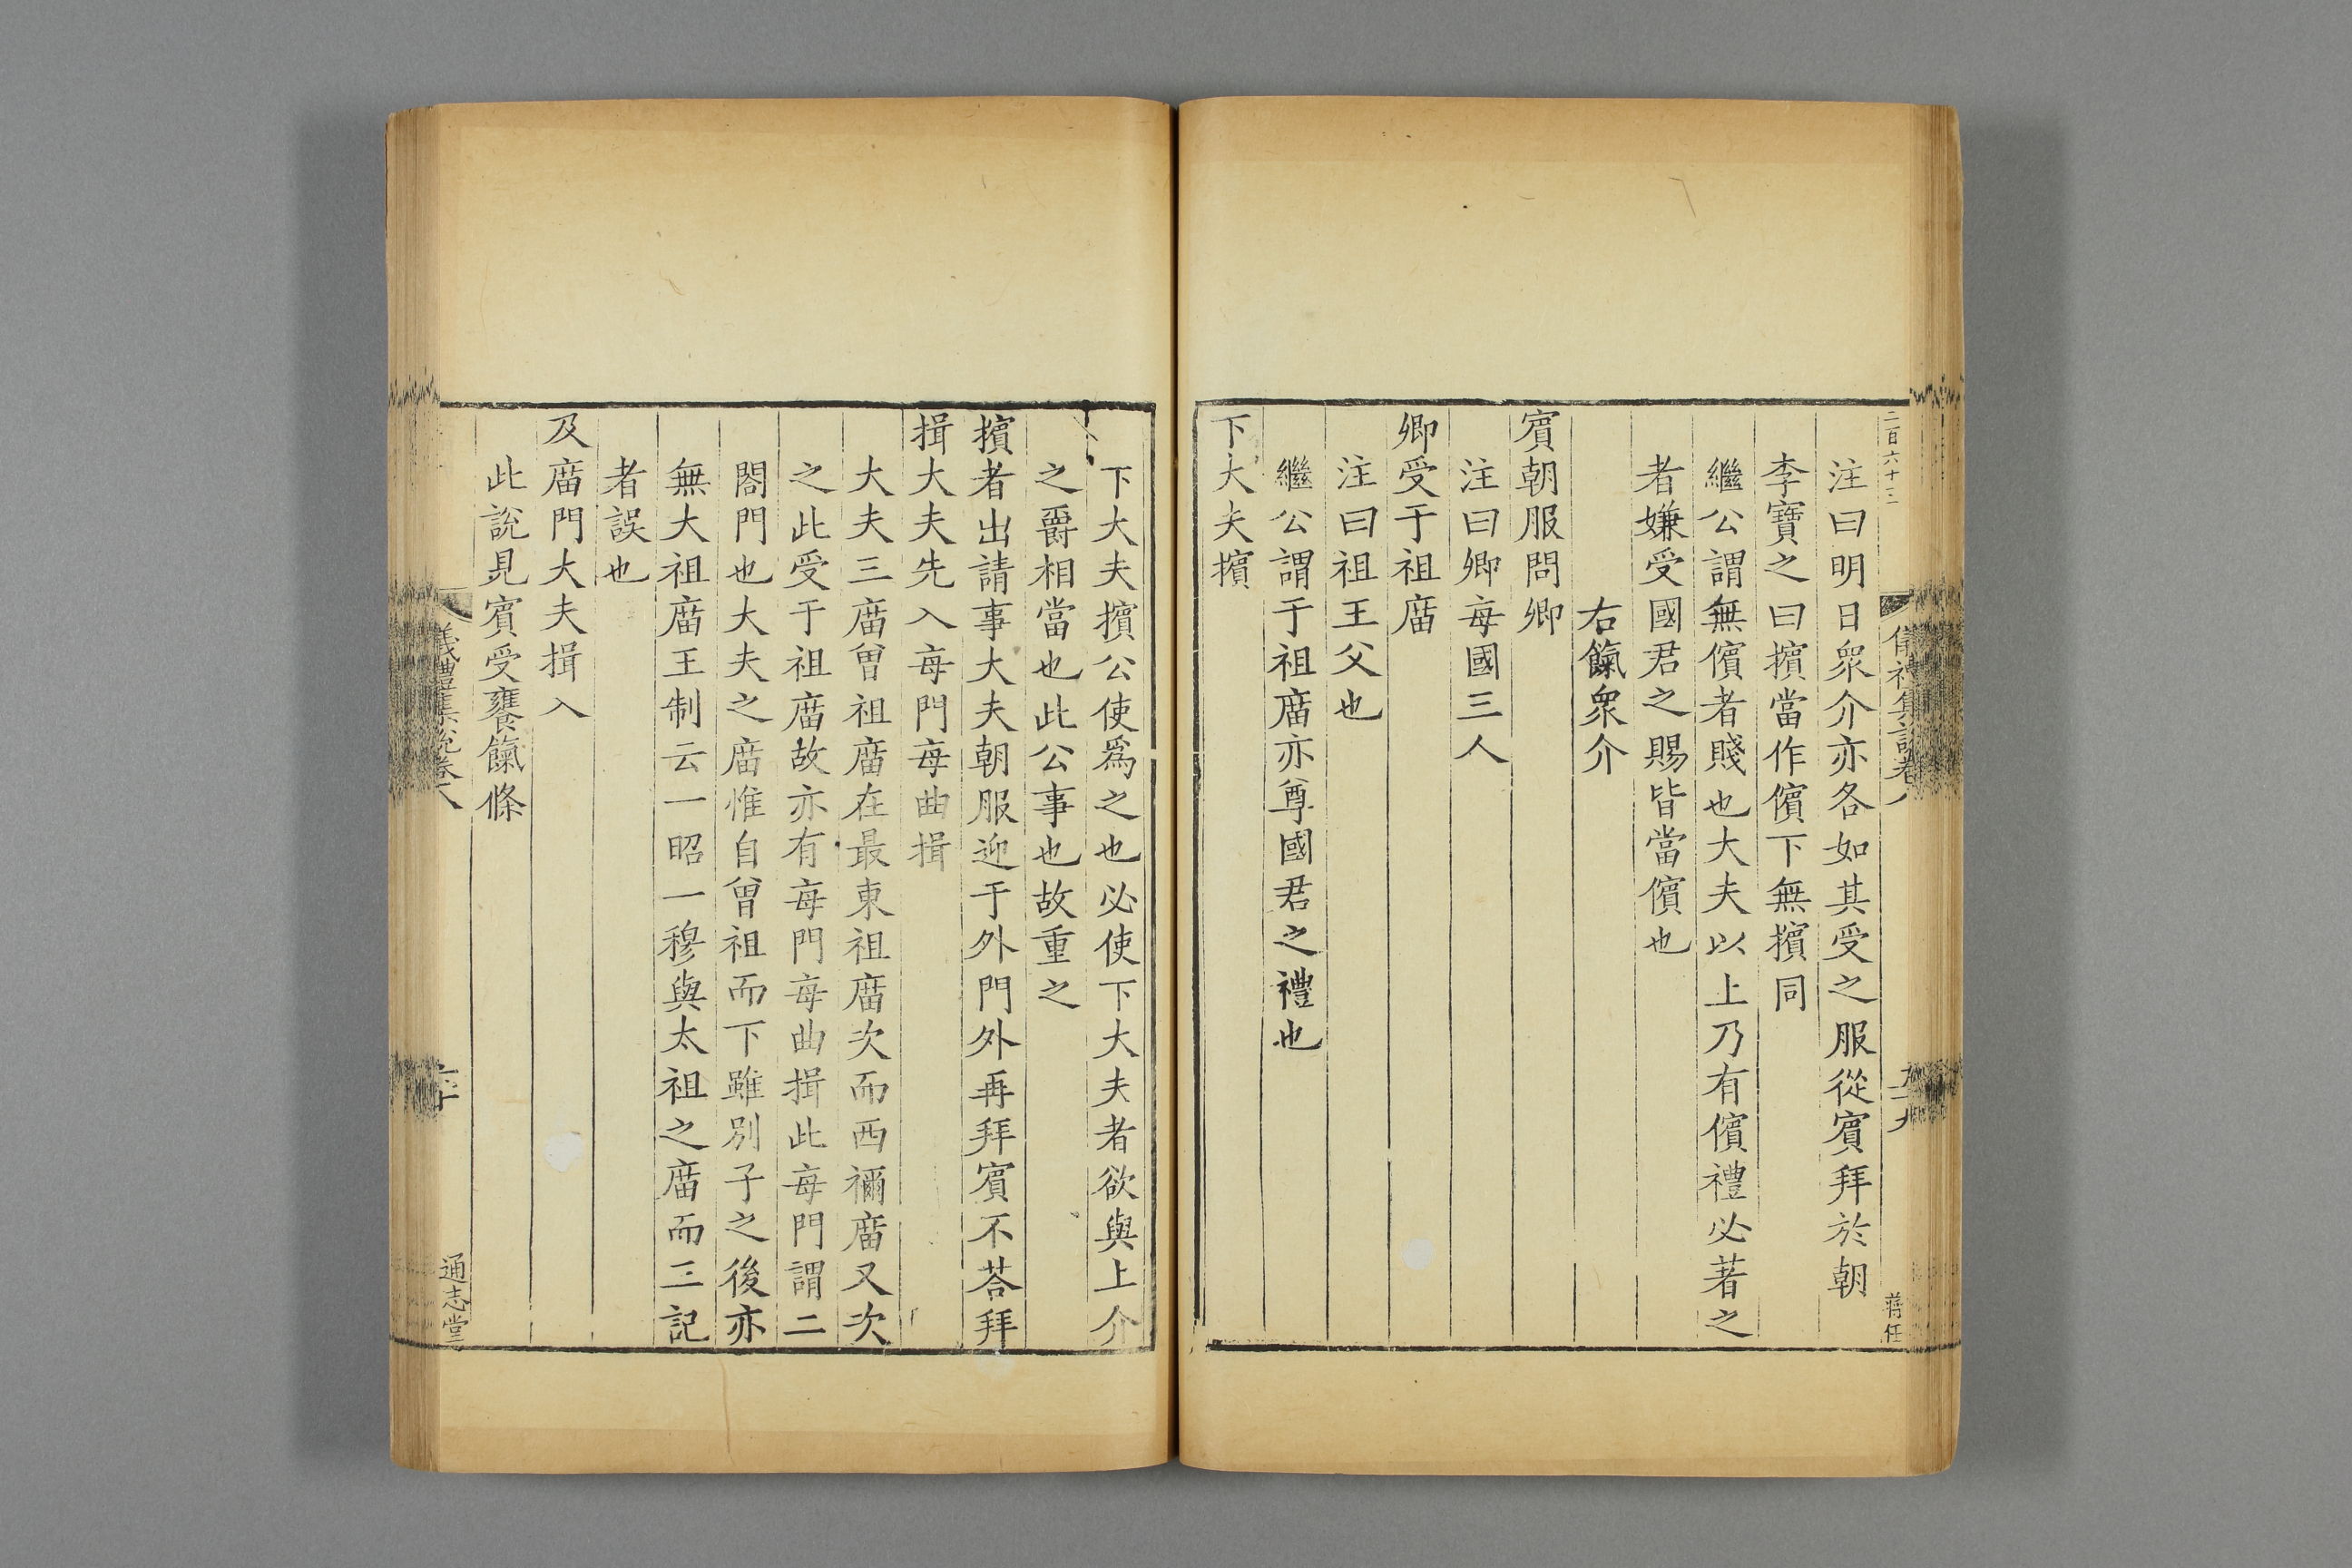 二百六十三
儀禮集說卷八
蔣任
注曰明日衆介亦各如其受之服從賓拜於朝
李寶之曰擯當作儐下無擯同
繼公謂無儐者賤也大夫以上乃有儐禮必著之
者嫌受國君之賜皆當儐也
右餼衆介
賓朝服問卿
注曰卿每國三人
卿受于祖庿
注曰祖王父也
繼公謂于祖庿亦尊國君之禮也
下大夫擯
下大夫擯公使爲之也必使下大夫者欲與上介
之爵相當也此公事也故重之
擯者出請事大夫朝服迎于外門外再拜賓不荅拜
揖大夫先入每門每曲揖
大夫三庿曾祖庿在最東祖庿次而西禰庿又次
之此受于祖庿故亦有每門每曲揖此每門謂二
閤門也大夫之庿惟自曾祖而下雖別子之後亦
無大祖庿王制云一昭一穆與太祖之庿而三記
者誤也
及庿門大夫揖入
此說見賓受饔餼條
儀禮集說卷八
通志堂